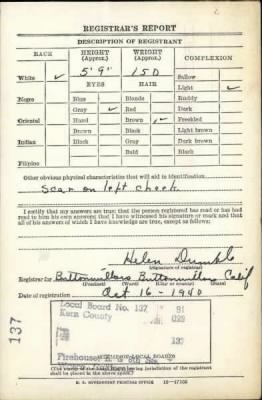 REGISTRAR'S REPORT
DESCRIPTION OF REGISTRANT
RACE HEIGHT (Approx.) WEIGHT (Approx.) COMPLEXION
White ✓ 5' 9" 150 Sallow
EYES HAIR Light ✓
Negro Blue Blonde Ruddy
Gray ✓ Red Dark
Oriental Hazel Brown ✓ Freckled
Brown Black Light brown
Indian Black Gray Dark brown
Bald Black
Filipino
Other obvious physical characteristics that will aid in identification
Scar on left cheek
I certify that my answers are true; that the person registered has read or has had
read to him his own answers; that I have witnessed his signature or mark and that
all of his answers of which I have knowledge are true, except as follows:
Helen
(Signature of registrar)
Registrar for Buttonwillow Buttonwillow Calif
(Precinct) (Ward) (City or county) (State)
Date of registration Oct 16 - 1940
Local Board No. 137 91
Kern County 029
137
Firehouse
LOCAL BOARD
having jurisdiction of the registrant
shall be placed in the above space)
U. S. GOVERNMENT PRINTING OFFICE 16—17105